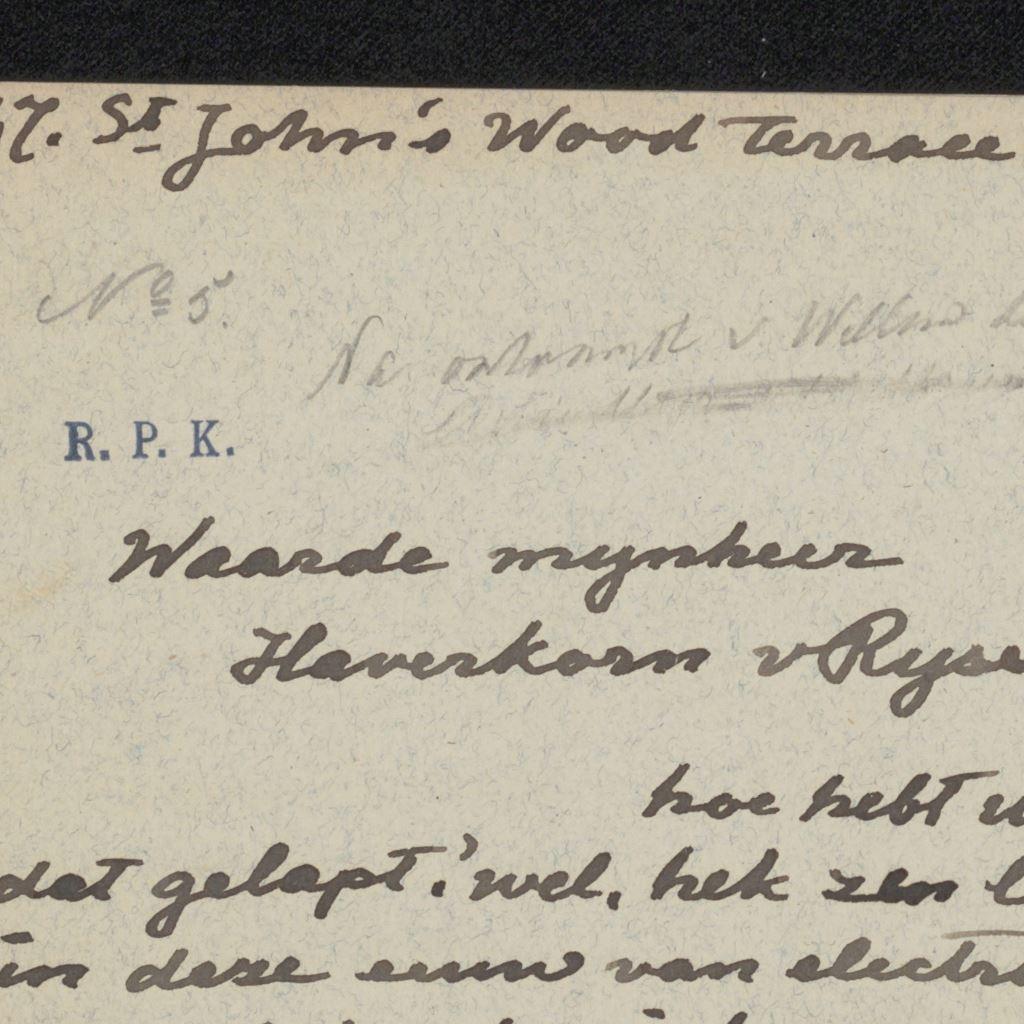 7. St John's Wood Terrace
No 5.
Na ontvangst v Willem
R. P. K.
Waarde mynheer
Haverkorn v Ryse
hoe hebt u
dat gelapt? wel, hek zen
in deze eeuw van electri